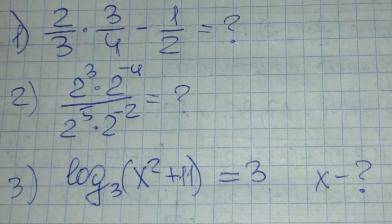 1) 2/3 · 3/4 - 1/2 = ?
2) (2³ · 2⁻⁴)/(2⁵ · 2⁻²) = ?
3) log₃(x² + 11) = 3 x - ?